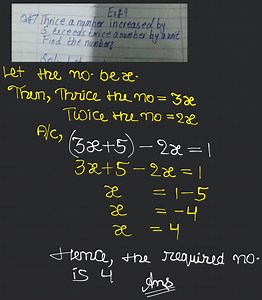 Ex# 9
Q#7. Thrice a number increased by
5 exceeds twice a number by 1 unit
Find the number.
Let the no. be x.
Then, Thrice the no = 3x
Twice the no = 2x
A/c, (3x+5) - 2x = 1
3x+5 - 2x = 1
x = 1-5
x = -4
x = 4
Hence, the required no.
is 4 Ans